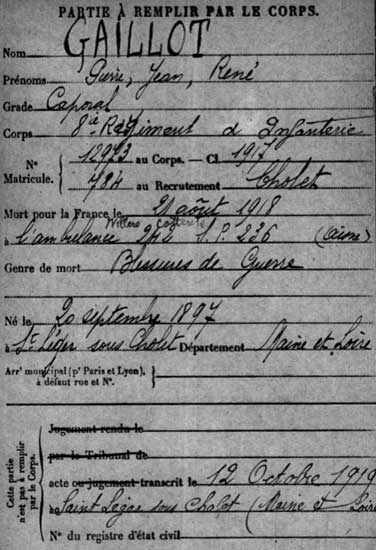 PARTIE À REMPLIR PAR LE CORPS.
GAILLOT
Nom
Prénoms Pierre, Jean, René
Grade Caporal
Corps 8ie Régiment d Infanterie
N° Matricule. 12973 au Corps. — Cl. 1917
784 au Recrutement Cholet
Mort pour la France le 21 août 1918
Villers Cotterets
à l'ambulance S.P. 236 (Aisne)
Genre de mort Blessures de Guerre
Né le 20 septembre 1897
à St Léger sous Cholet Département Maine et Loire
Arrt municipal (pr Paris et Lyon),
à défaut rue et N°.
Cette partie n'est pas à remplir par le Corps.
Jugement rendu le
par le Tribunal de
acte ou jugement transcrit le 12 Octobre 1919
à Saint Léger sous Cholet (Maine et Loire
N° du registre d'état civil